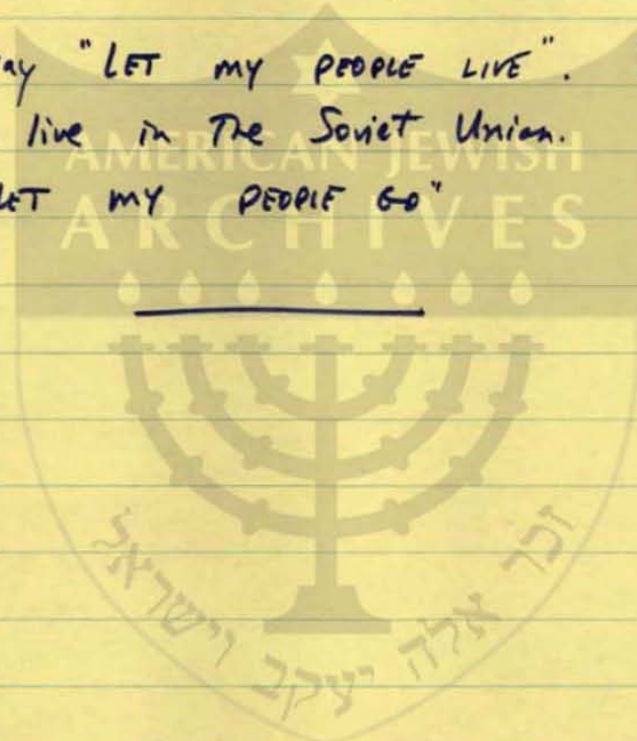 ay "LET MY PEOPLE LIVE".
live in The Soviet Union.
LET MY PEOPLE GO"
AMERICAN JEWISH
ARCHIVES
זכר אלה יעקב וישראל